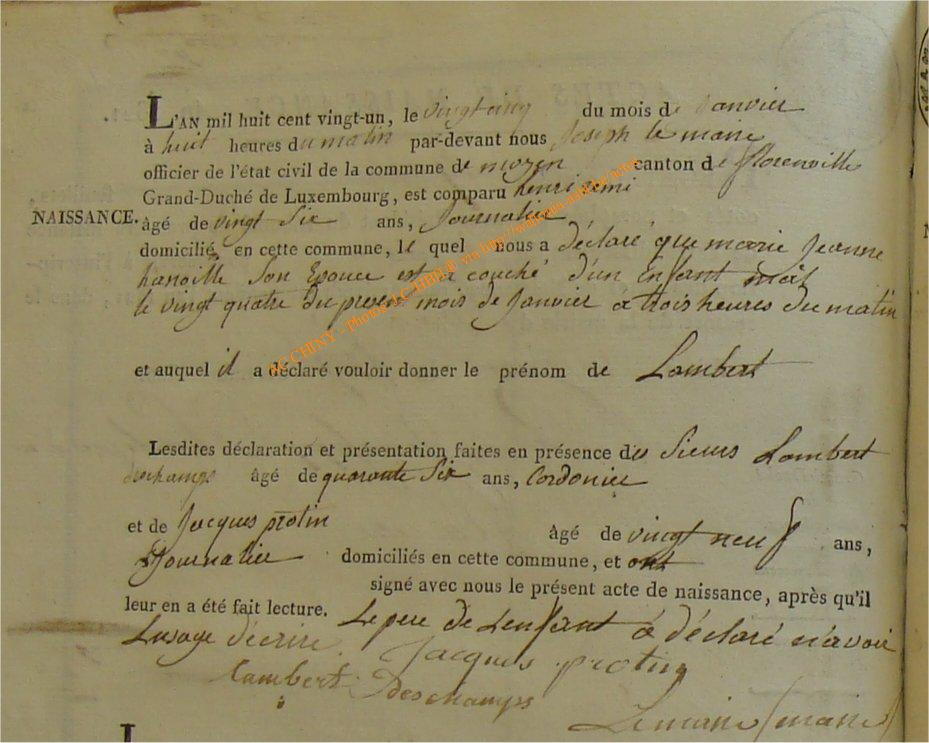 L'AN mil huit cent vingt-un, le vingt cinq du mois de Janvier
à huit heures du matin par-devant nous Joseph le maire
officier de l'état civil de la commune de moyen canton de florenville
Grand-Duché de Luxembourg, est comparu henri remi
NAISSANCE. âgé de vingt Six ans, Journalier
domicilié en cette commune, le quel nous a déclaré que marie Jeanne
hanoille Son Epouce est a couché d'un Enfant
le vingt quatre du present mois de Janvier à trois heures du matin
et auquel il a déclaré vouloir donner le prénom de Lambert
Lesdites déclaration et présentation faites en présence des Sieurs Lambert
deschamps âgé de quarante Six ans, Cordonier
et de Jacques protin âgé de vingt neuf ans,
Journalier domiciliés en cette commune, et ont
signé avec nous le présent acte de naissance, après qu'il
leur en a été fait lecture. Le pere de L'enfant à déclaré n'avoir
Lusage décrire
Jacques protin
Lambert Deschamps
Lemaire (maire)
ACCHINY - Photos AC-HIBE@ via http://
L